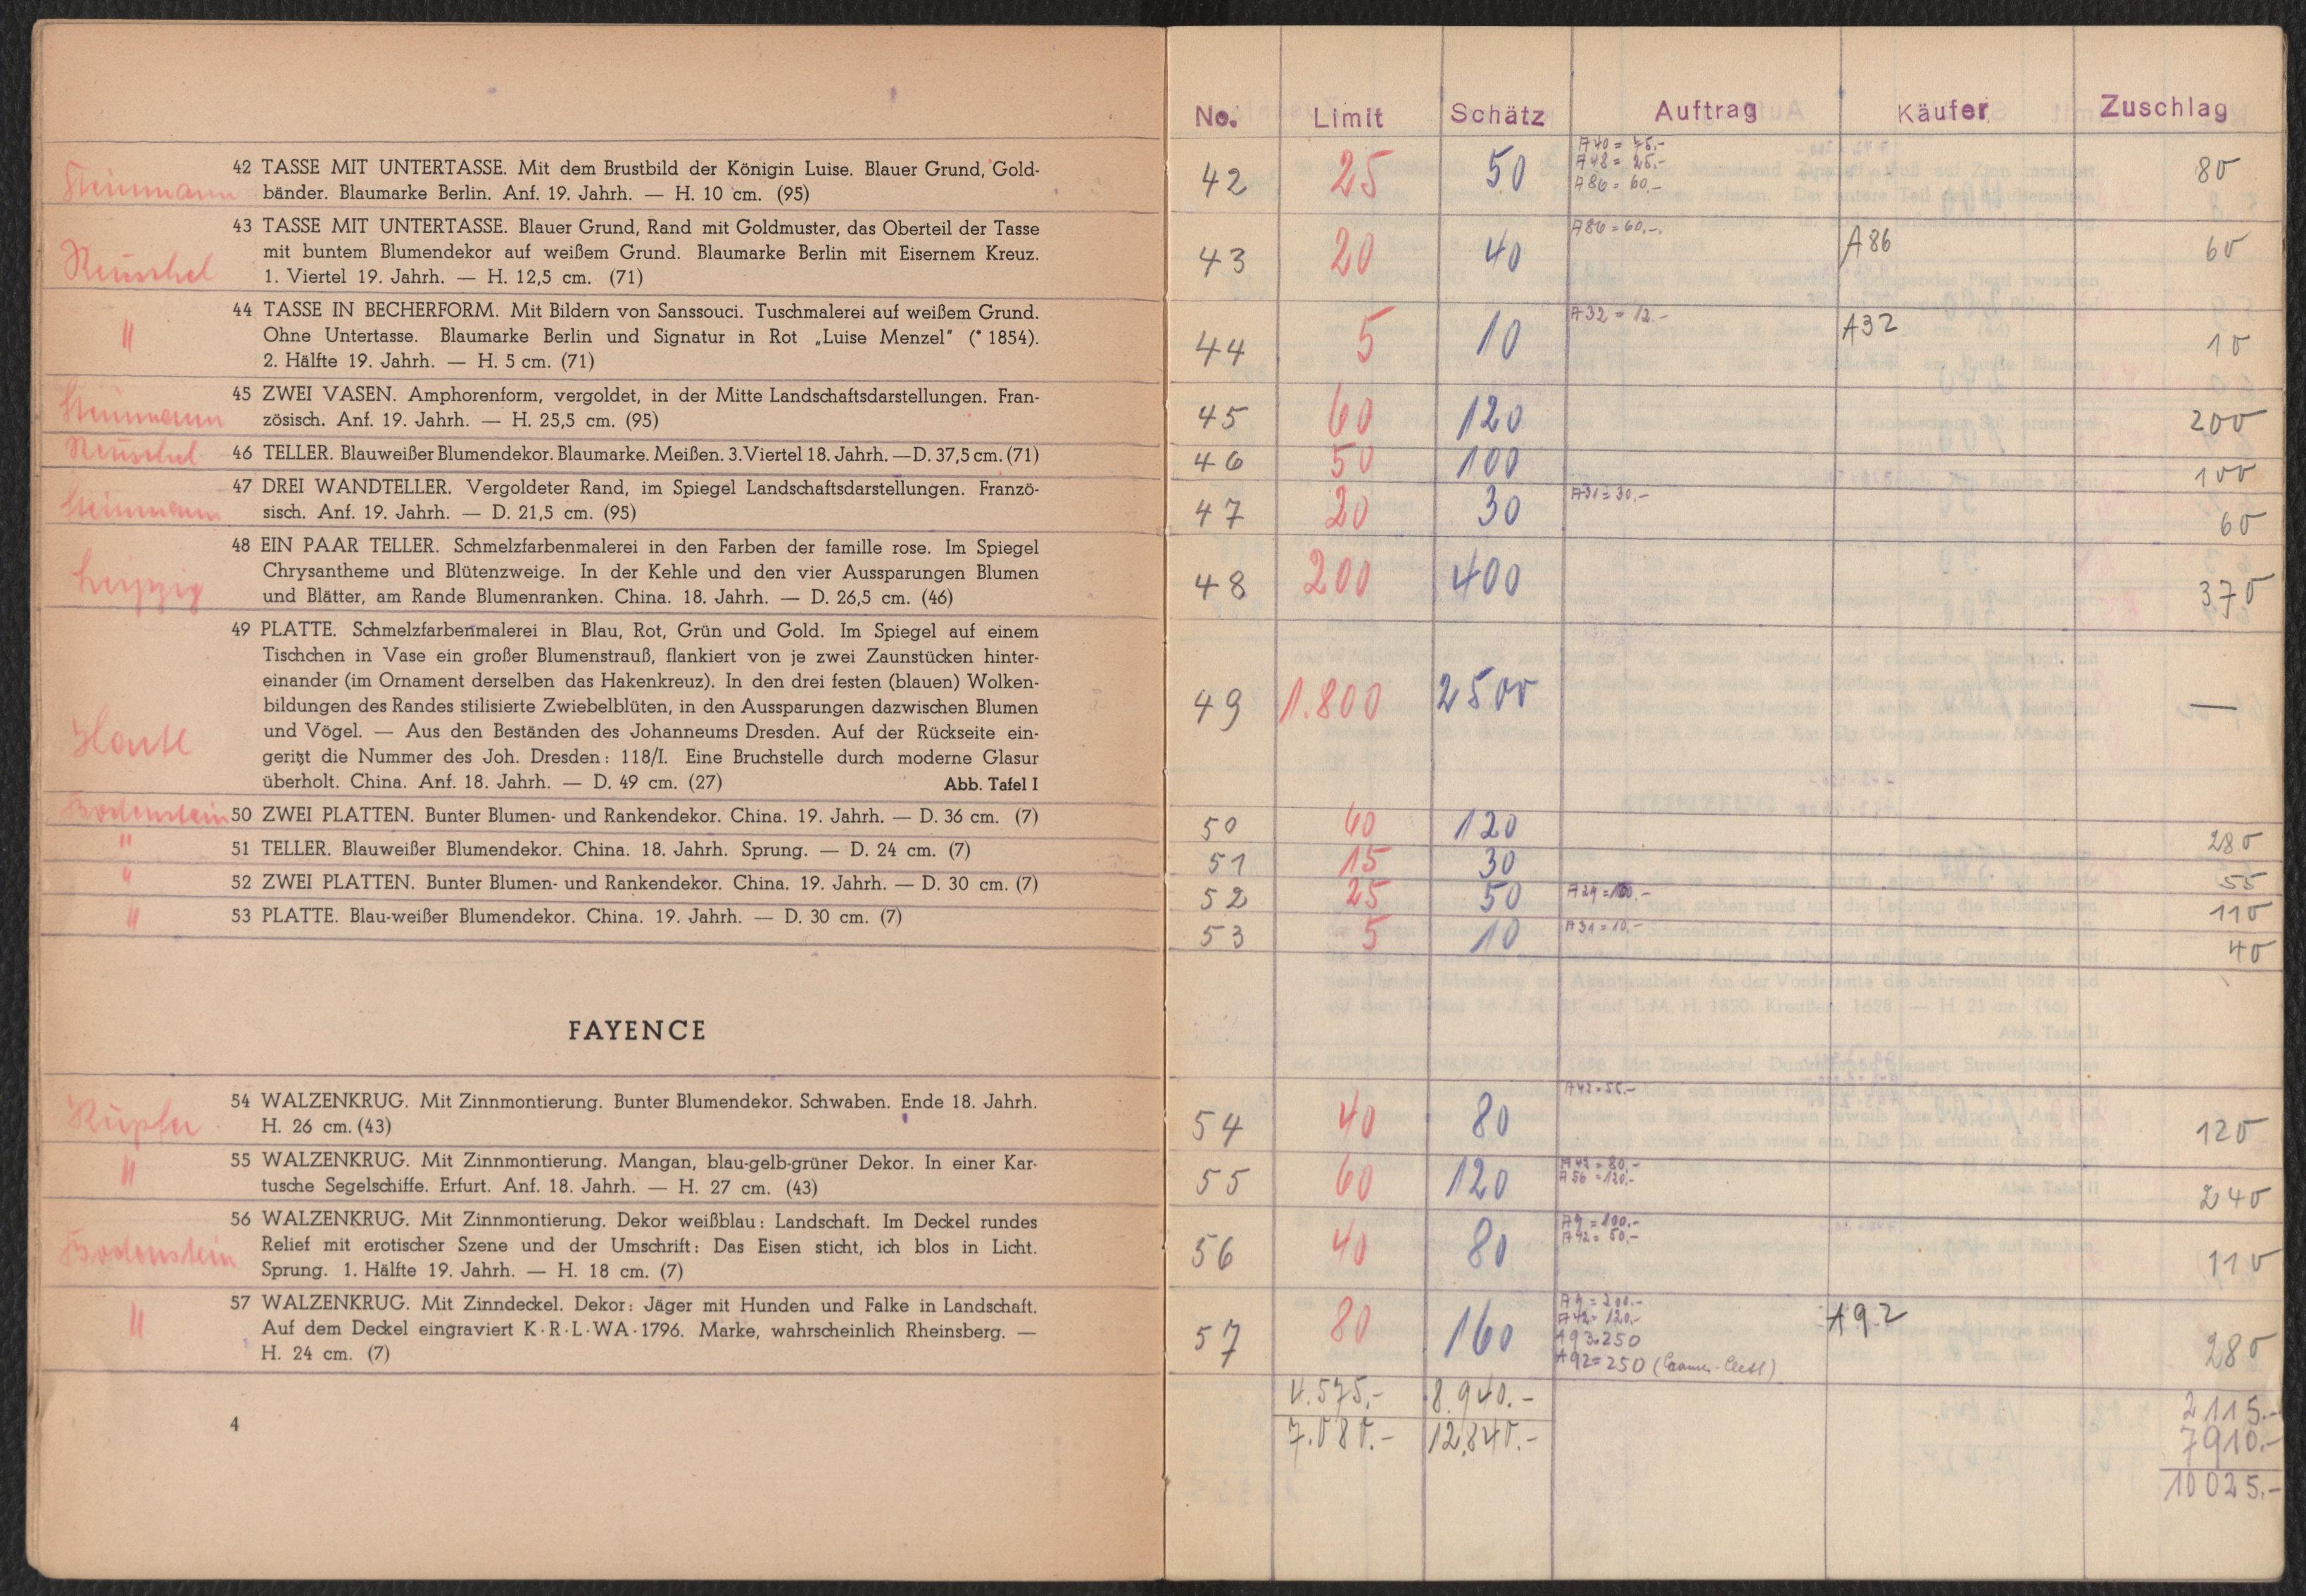 Steinmann
42 TASSE MIT UNTERTASSE. Mit dem Brustbild der Königin Luise. Blauer Grund, Gold-
bänder. Blaumarke Berlin. Anf. 19. Jahrh. — H. 10 cm. (95)
43 TASSE MIT UNTERTASSE. Blauer Grund, Rand mit Goldmuster, das Oberteil der Tasse
mit buntem Blumendekor auf weißem Grund. Blaumarke Berlin mit Eisernem Kreuz.
1. Viertel 19. Jahrh. — H. 12,5 cm. (71)
"
44 TASSE IN BECHERFORM. Mit Bildern von Sanssouci. Tuschmalerei auf weißem Grund.
Ohne Untertasse. Blaumarke Berlin und Signatur in Rot „Luise Menzel" (* 1854).
2. Hälfte 19. Jahrh. — H. 5 cm. (71)
Steinmann
45 ZWEI VASEN. Amphorenform, vergoldet, in der Mitte Landschaftsdarstellungen. Fran-
zösisch. Anf. 19. Jahrh. — H. 25,5 cm. (95)
46 TELLER. Blauweißer Blumendekor. Blaumarke. Meißen. 3. Viertel 18. Jahrh. — D. 37,5 cm. (71)
Steinmann
47 DREI WANDTELLER. Vergoldeter Rand, im Spiegel Landschaftsdarstellungen. Franzö-
sisch. Anf. 19. Jahrh. — D. 21,5 cm. (95)
Leipzig
48 EIN PAAR TELLER. Schmelzfarbenmalerei in den Farben der famille rose. Im Spiegel
Chrysantheme und Blütenzweige. In der Kehle und den vier Aussparungen Blumen
und Blätter, am Rande Blumenranken. China. 18. Jahrh. — D. 26,5 cm. (46)
49 PLATTE. Schmelzfarbenmalerei in Blau, Rot, Grün und Gold. Im Spiegel auf einem
Tischchen in Vase ein großer Blumenstrauß, flankiert von je zwei Zaunstücken hinter-
einander (im Ornament derselben das Hakenkreuz). In den drei festen (blauen) Wolken-
bildungen des Randes stilisierte Zwiebelblüten, in den Aussparungen dazwischen Blumen
und Vögel. — Aus den Beständen des Johanneums Dresden. Auf der Rückseite ein-
geritzt die Nummer des Joh. Dresden: 118/I. Eine Bruchstelle durch moderne Glasur
überholt. China. Anf. 18. Jahrh. — D. 49 cm. (27) Abb. Tafel I
Bodenstein
50 ZWEI PLATTEN. Bunter Blumen- und Rankendekor. China. 19. Jahrh. — D. 36 cm. (7)
"
51 TELLER. Blauweißer Blumendekor. China. 18. Jahrh. Sprung. — D. 24 cm. (7)
"
52 ZWEI PLATTEN. Bunter Blumen- und Rankendekor. China. 19. Jahrh. — D. 30 cm. (7)
"
53 PLATTE. Blau-weißer Blumendekor. China. 19. Jahrh. — D. 30 cm. (7)
FAYENCE
54 WALZENKRUG. Mit Zinnmontierung. Bunter Blumendekor. Schwaben. Ende 18. Jahrh.
H. 26 cm. (43)
"
55 WALZENKRUG. Mit Zinnmontierung. Mangan, blau-gelb-grüner Dekor. In einer Kar-
tusche Segelschiffe. Erfurt. Anf. 18. Jahrh. — H. 27 cm. (43)
Bodenstein
56 WALZENKRUG. Mit Zinnmontierung. Dekor weißblau: Landschaft. Im Deckel rundes
Relief mit erotischer Szene und der Umschrift: Das Eisen sticht, ich blos in Licht.
Sprung. 1. Hälfte 19. Jahrh. — H. 18 cm. (7)
"
57 WALZENKRUG. Mit Zinndeckel. Dekor: Jäger mit Hunden und Falke in Landschaft.
Auf dem Deckel eingraviert K·R·L·WA·1796. Marke, wahrscheinlich Rheinsberg. —
H. 24 cm. (7)
4
No. Limit Schätz Auftrag Käufer Zuschlag
A40 = 75,-
A48 = 25,-
A86 = 60,-
42 25 50 80
A86 = 60,-
43 20 40 A86 60
A32 = 12.-
44 5 10 A32 10
45 60 120 200
46 50 100 100
47 20 30 A31 = 30,- 60
48 200 400 370
49 1.800 2500 —
50 60 120 280
51 15 30 55
52 25 50 A29 = 100.- 110
53 5 10 A31 = 10,- 40
A42 = 50.-
54 40 80 120
A42 = 80,-
A56 = 120,-
55 60 120 240
A9 = 100.-
A42 = 50,-
56 40 80 110
A9 = 200.-
A42 = 120,-
A93 = 250
A92 = 250
57 80 160 A92 280
4.575,- 8.940.- 2115.-
7.080.- 12.840.- 7910.-
10025.-